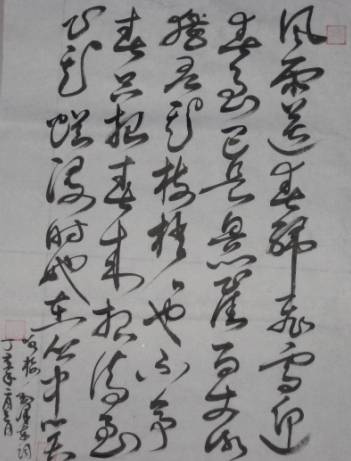 风雨送春归飞雪迎
春到已是悬崖百丈冰
犹有花枝俏〻也不争
春只把春来报待到
山花烂漫时她在丛中笑
咏梅 毛泽东词